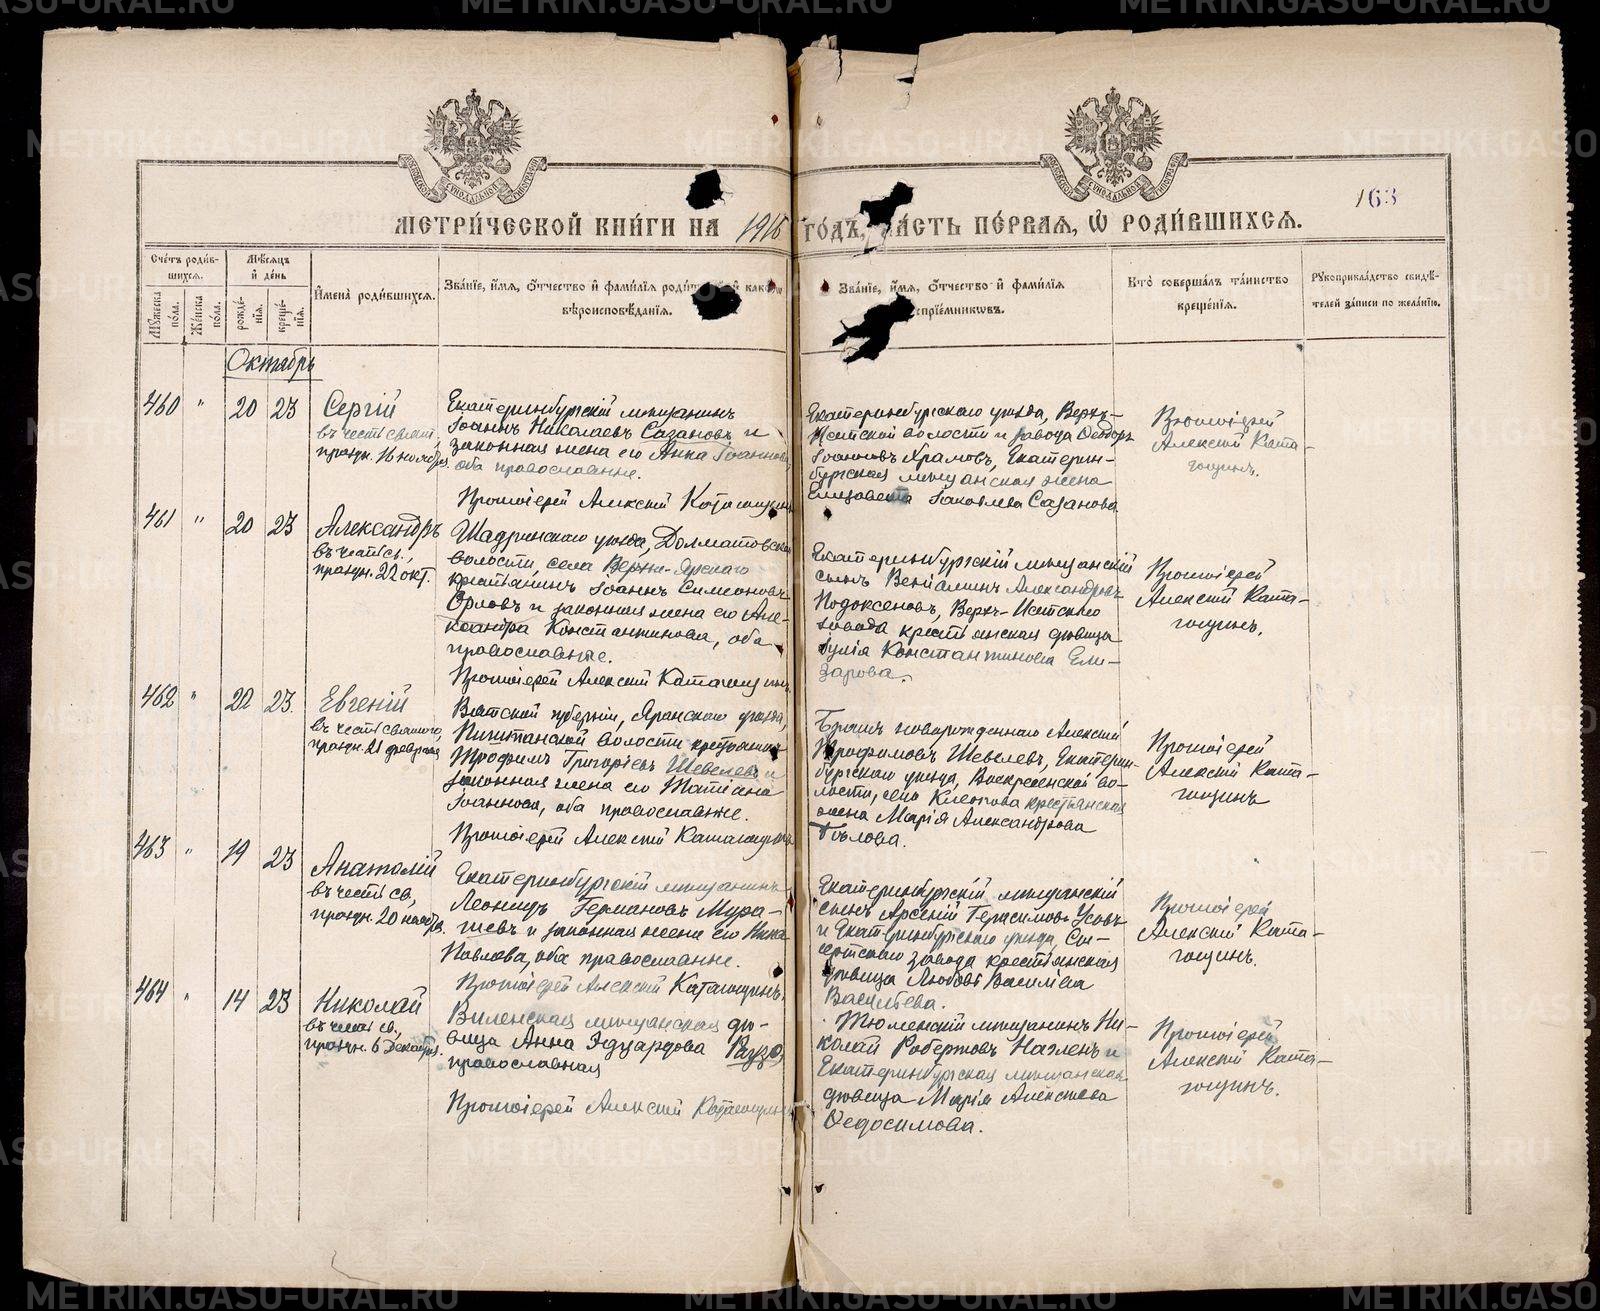 163
МЕТРИ́ЧЕСКОЙ КНИ́ГИ НА 1916 ГО́ДЪ, ЧА́СТЬ ПЕ́РВАЯ, Ѡ РОДИ́ВШИХСЯ.
Сче́тъ роди́в-
шихся.
Му́жеска по́ла.
Же́нска по́ла.
Мѣ́сяцъ
и҆ де́нь
рожде́-
нїѧ.
креще́-
нїѧ.
И҆мена̀ роди́вшихсѧ.
Зва́нїе, и҆́мѧ, ѻ҆́тчество и҆ фами́лїѧ роди́телей
вѣроисповѣ́данїѧ.
Зва́нїе, и҆́мѧ, ѻ҆́тчество и҆ фами́лїѧ
воспрїе́мникѡвъ.
Кто̀ соверша́лъ та́инство
креще́нїѧ.
Рꙋкоприкла́дство свидѣ́-
телей за́писи по жела́нїю.
Октябрь
460 " 20 23
Сергій
въ честь святого,
праздн.
Екатеринбургскій мѣщанинъ
Іоаннъ Николаевъ Сазановъ и
законная жена его Анна Іоаннова,
оба православные.
Протоіерей Алексій Катагощинъ
Екатеринбургскаго уѣзда, Верхъ-
Исетской волости и завода Ѳеодоръ
Іоанновъ Храмовъ, Екатерин-
бургская мѣщанская жена
Елизавета Іаковлева Сазанова
Протоіерей
Алексій Ката-
гощинъ.
461 " 20 23
Александръ
въ честь св.,
праздн. 22 окт.
Шадринскаго уѣзда, Долматовской
волости, села Верхне-Ярскаго
крестьянинъ Іоаннъ Симеоновъ
Орловъ и законная жена его Але-
ксандра Константинова, оба
православные.
Протоіерей Алексій Катагощинъ.
Екатеринбургскій мѣщанскій
сынъ Веніаминъ Александровъ
Подоксеновъ, Верхъ-Исетскаго
завода крестьянская дѣвица
Іулія Константинова Ели-
зарова.
Протоіерей
Алексій Ката-
гощинъ.
462 " 20 23.
Евгеній
въ честь святого,
праздн. 21 февраля
Вятской губерніи, Яранскаго уѣзда,
волости крестьянинъ
Трофимъ Григорьевъ Шевелевъ и
законная жена его Татіана
Іоаннова, оба православные.
Протоіерей Алексій Катагощинъ
Братъ новорожденнаго Алексій
Трофимовъ Шевелевъ, Екатерин-
бургскаго уѣзда, Воскресенской во-
лости, села крестьянская
жена Марія Александрова
Бѣлова.
Протоіерей
Алексій Ката-
гощинъ
463 " 19 23
Анатолій
въ честь св.,
праздн. 20 ноября.
Екатеринбургскій мѣщанинъ
Леонидъ Германовъ Мура-
шевъ и законная жена его Нина
Павлова, оба православные.
Протоіерей Алексій Катагощинъ.
Екатеринбургскій мѣщанскій
сынъ Арсеній Герасимовъ Усовъ
и Екатеринбургскаго уѣзда, Сы-
сертскаго завода крестьянская
дѣвица Любовь Василіева
Васильева.
Протоіерей
Алексій Ката-
гощинъ.
464 " 14 23
Николай
въ честь св.,
праздн. 6 Декабря.
Виленская мѣщанская дѣ-
вица Анна Эдуардова
православная
Протоіерей Алексій Катагощинъ
Тюменскій мѣщанинъ Ни-
колай Робертовъ и
Екатеринбургская мѣщанская
дѣвица Марія Алексѣева
Ѳедосимова.
Протоіерей
Алексій Ката-
гощинъ.
METRIKI.GASO-URAL.RU